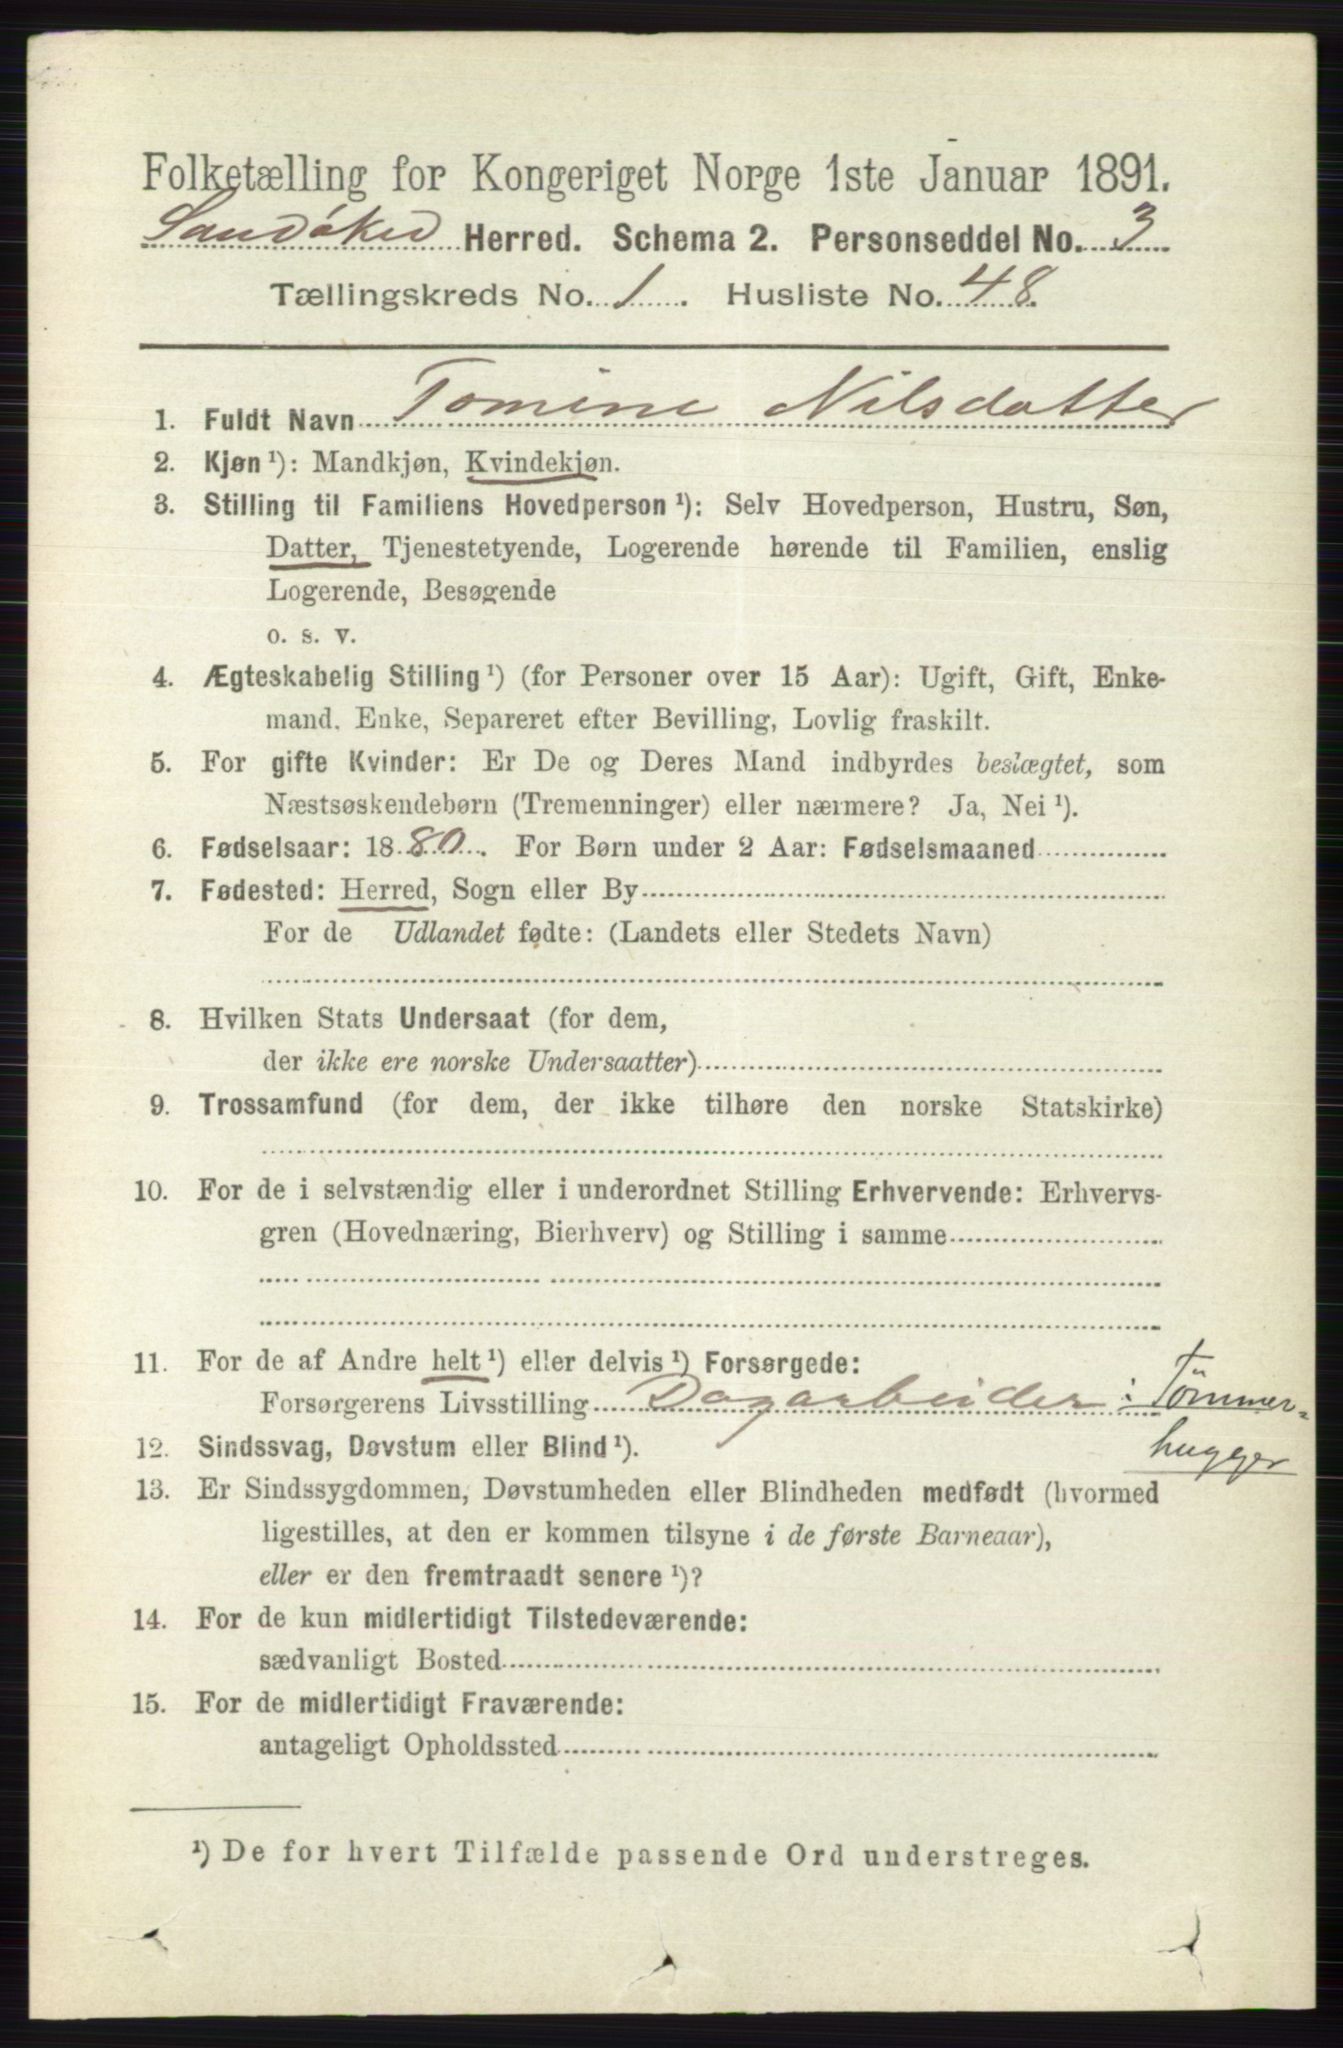 Folketælling for Kongeriget Norge 1ste Januar 1891.
Sandøked Herred. Schema 2. Personseddel No. 3
Tællingskreds No. 1. Husliste No. 48.
1. Fuldt Navn Tomine Nilsdatter
2. Kjøn ¹): Mandkjøn, Kvindekjøn.
3. Stilling til Familiens Hovedperson ¹): Selv Hovedperson, Hustru, Søn,
Datter, Tjenestetyende, Logerende hørende til Familien, enslig
Logerende, Besøgende
o. s. v.
4. Ægteskabelig Stilling ¹) (for Personer over 15 Aar): Ugift, Gift, Enke-
mand, Enke, Separeret efter Bevilling, Lovlig fraskilt.
5. For gifte Kvinder: Er De og Deres Mand indbyrdes beslægtet, som
Næstsøskendebørn (Tremenninger) eller nærmere? Ja, Nei ¹).
6. Fødselsaar: 1880. For Børn under 2 Aar: Fødselsmaaned
7. Fødested: Herred, Sogn eller By
For de Udlandet fødte: (Landets eller Stedets Navn)
8. Hvilken Stats Undersaat (for dem,
der ikke ere norske Undersaatter)
9. Trossamfund (for dem, der ikke tilhøre den norske Statskirke)
10. For de i selvstændig eller i underordnet Stilling Erhvervende: Erhvervs-
gren (Hovednæring, Bierhverv) og Stilling i samme
11. For de af Andre helt ¹) eller delvis ¹) Forsørgede:
Forsørgerens Livsstilling Dagarbeider i Tömmer-
hugger
12. Sindssvag, Døvstum eller Blind ¹).
13. Er Sindssygdommen, Døvstumheden eller Blindheden medfødt (hvormed
ligestilles, at den er kommen tilsyne i de første Barneaar),
eller er den fremtraadt senere ¹)?
14. For de kun midlertidigt Tilstedeværende:
sædvanligt Bosted
15. For de midlertidigt Fraværende:
antageligt Opholdssted
¹) De for hvert Tilfælde passende Ord understreges.